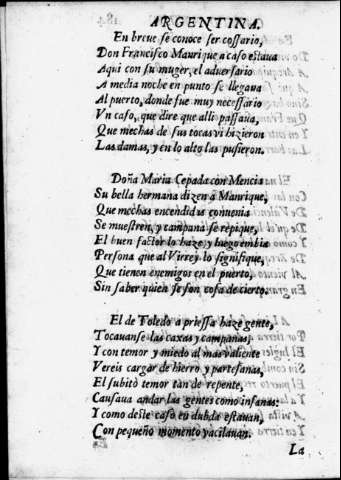 ARGENTINA.
En breue se conoce ser cossario,
Don Francisco Manrique a caso estaua
Aqui con su muger, el aduersario
A media noche en punto se llegaua
Al puerto, donde fue muy necessario
Vn caso, que dire que alli passaua,
Que mechas de sus tocas vi hizieron
Las damas, y en lo alto las pusieron.
Doña Maria Cepada con Mencia
Su bella hermana dizen à Manrique,
Que mechas encendidas conuenia
Se muestren, y campana se repique,
El buen factor lo haze, y luego embia
Persona que al Virrey lo signifique,
Que tienen enemigos en el puerto,
Sin saber quien se son cosa de cierto.
El de Toledo a priessa haze gente,
Tocauanse las caxas y campanas,
Y con temor y miedo al mas valiente
Vereis cargar de hierro y partesanas,
El subito temor tan de repente,
Causaua andar las gentes como insanas:
Y como deste caso en dubda estauan,
Con pequeño momento vacilauan.
La